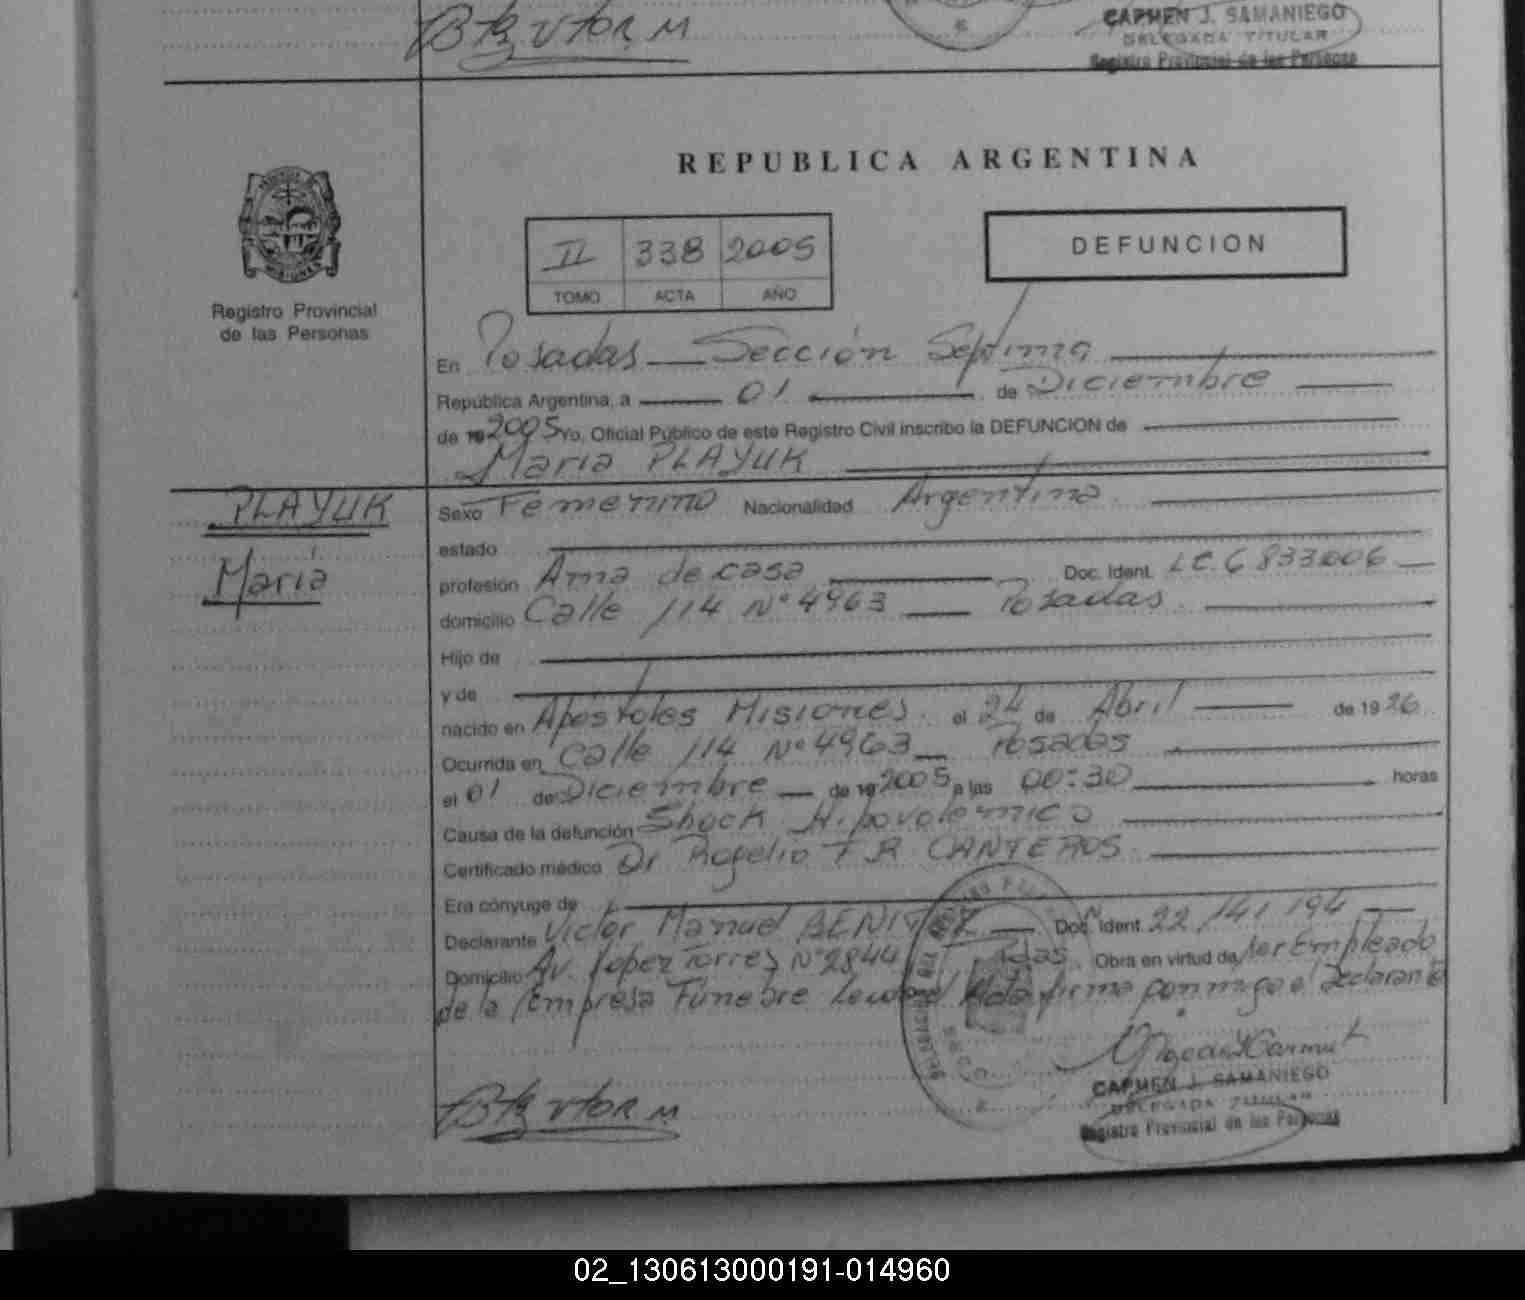 Btz Vtor M
CARMEN J. SAMANIEGO
DELEGADA TITULAR
Registro Provincial de las Personas
REPUBLICA ARGENTINA
II 338 2005
TOMO ACTA AÑO
DEFUNCION
Registro Provincial
de las Personas
En Posadas — Sección Septima
República Argentina, a 01 de Diciembre
de 19 2005 Yo, Oficial Público de este Registro Civil inscribo la DEFUNCION de
Maria PLAYUK
PLAYUK
Maria
Sexo Femenino Nacionalidad Argentina
estado
profesión Ama de casa Doc. Ident. LC. 6833006
domicilio Calle 114 Nº 4963 — Posadas
Hijo de
y de
nacido en Apóstoles Misiones el 24 de Abril de 1926
Ocurrida en Calle 114 Nº 4963 — Posadas
el 01 de Diciembre — de 19 2005 a las 00:30 horas
Causa de la defunción Shock Hipovolemico
Certificado médico Dr Rogelio F R CANTEROS
Era cónyuge de
Declarante Victor Manuel BENITEZ — Doc. Ident. 22/141 194
Domicilio Av. Lopez Torres Nº 2844 Pdas. Obra en virtud de ser Empleado
de la Empresa Fúnebre Leida el Acta firma conmigo el Declarante
Btz Vtor M
CARMEN J. SAMANIEGO
DELEGADA TITULAR
Registro Provincial de las Personas
02_130613000191-014960